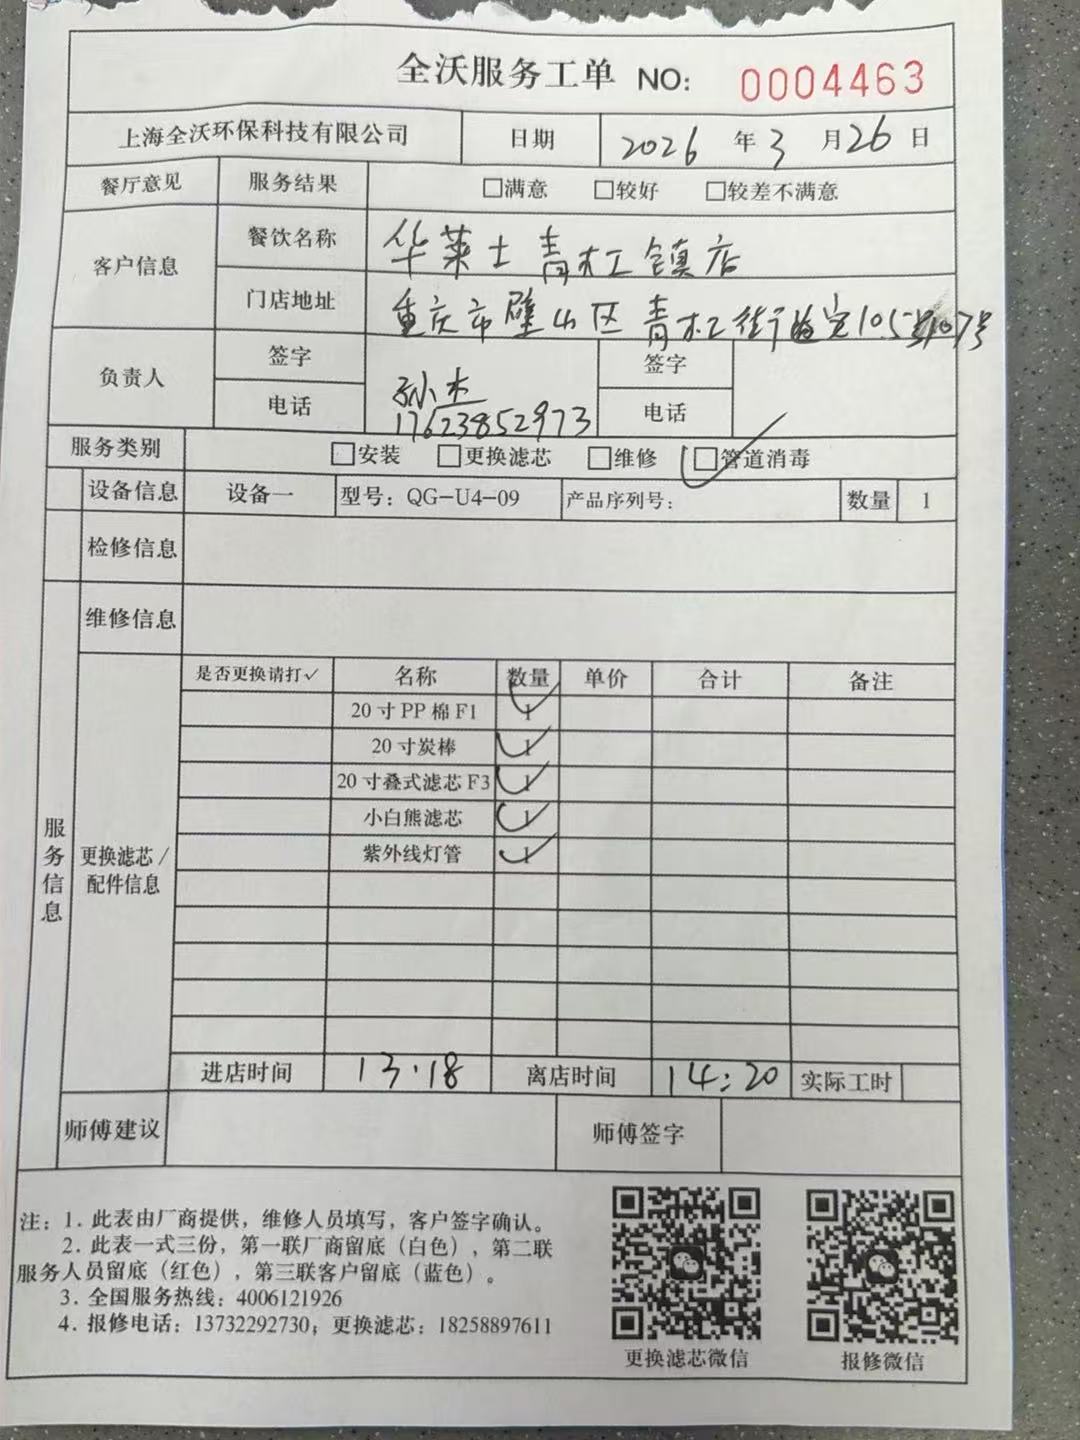 全沃服务工单 NO: 0004463
上海全沃环保科技有限公司 日期 2026 年 3 月 26 日
餐厅意见 服务结果 □满意 □较好 □较差不满意
客户信息 餐饮名称 华莱士青杠镇店
门店地址 重庆市壁山区青杠街道 107号
负责人 签字 孙木 签字
电话 17623852973 电话
服务类别 □安装 □更换滤芯 □维修 ☑管道消毒
设备信息 设备一 型号: QG-U4-09 产品序列号: 数量 1
检修信息
维修信息
服务信息
更换滤芯/配件信息
是否更换请打✓ 名称 数量 单价 合计 备注
20寸PP棉F1 1 ✓
20寸炭棒 1 ✓
20寸叠式滤芯F3 1 ✓
小白熊滤芯 1 ✓
紫外线灯管 1 ✓
进店时间 13:18 离店时间 14:20 实际工时
师傅建议 师傅签字
注: 1. 此表由厂商提供, 维修人员填写, 客户签字确认。
2. 此表一式三份, 第一联厂商留底(白色), 第二联
服务人员留底(红色), 第三联客户留底(蓝色)。
3. 全国服务热线: 4006121926
4. 报修电话: 13732292730; 更换滤芯: 18258897611
更换滤芯微信 报修微信